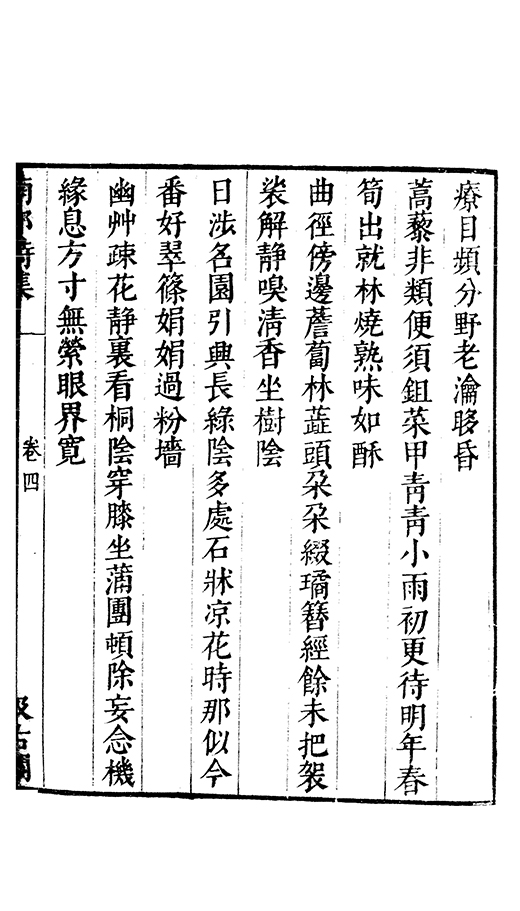 療目頻分野老瀹眵昏
蒿藜非類便須鉏菜甲青青小雨初更待明年春
筍出就林燒熟味如酥
曲徑傍邊薝蔔林蕋頭朶朶綴璚簪經餘未把袈
裟解静嗅清香坐樹陰
日涉名園引興長綠陰多處石牀凉花時那似今
番好翠篠娟娟過粉墻
幽艸疎花静裏看桐陰穿膝坐蒲團頓除妄念機
緣息方寸無縈眼界寛
卷四